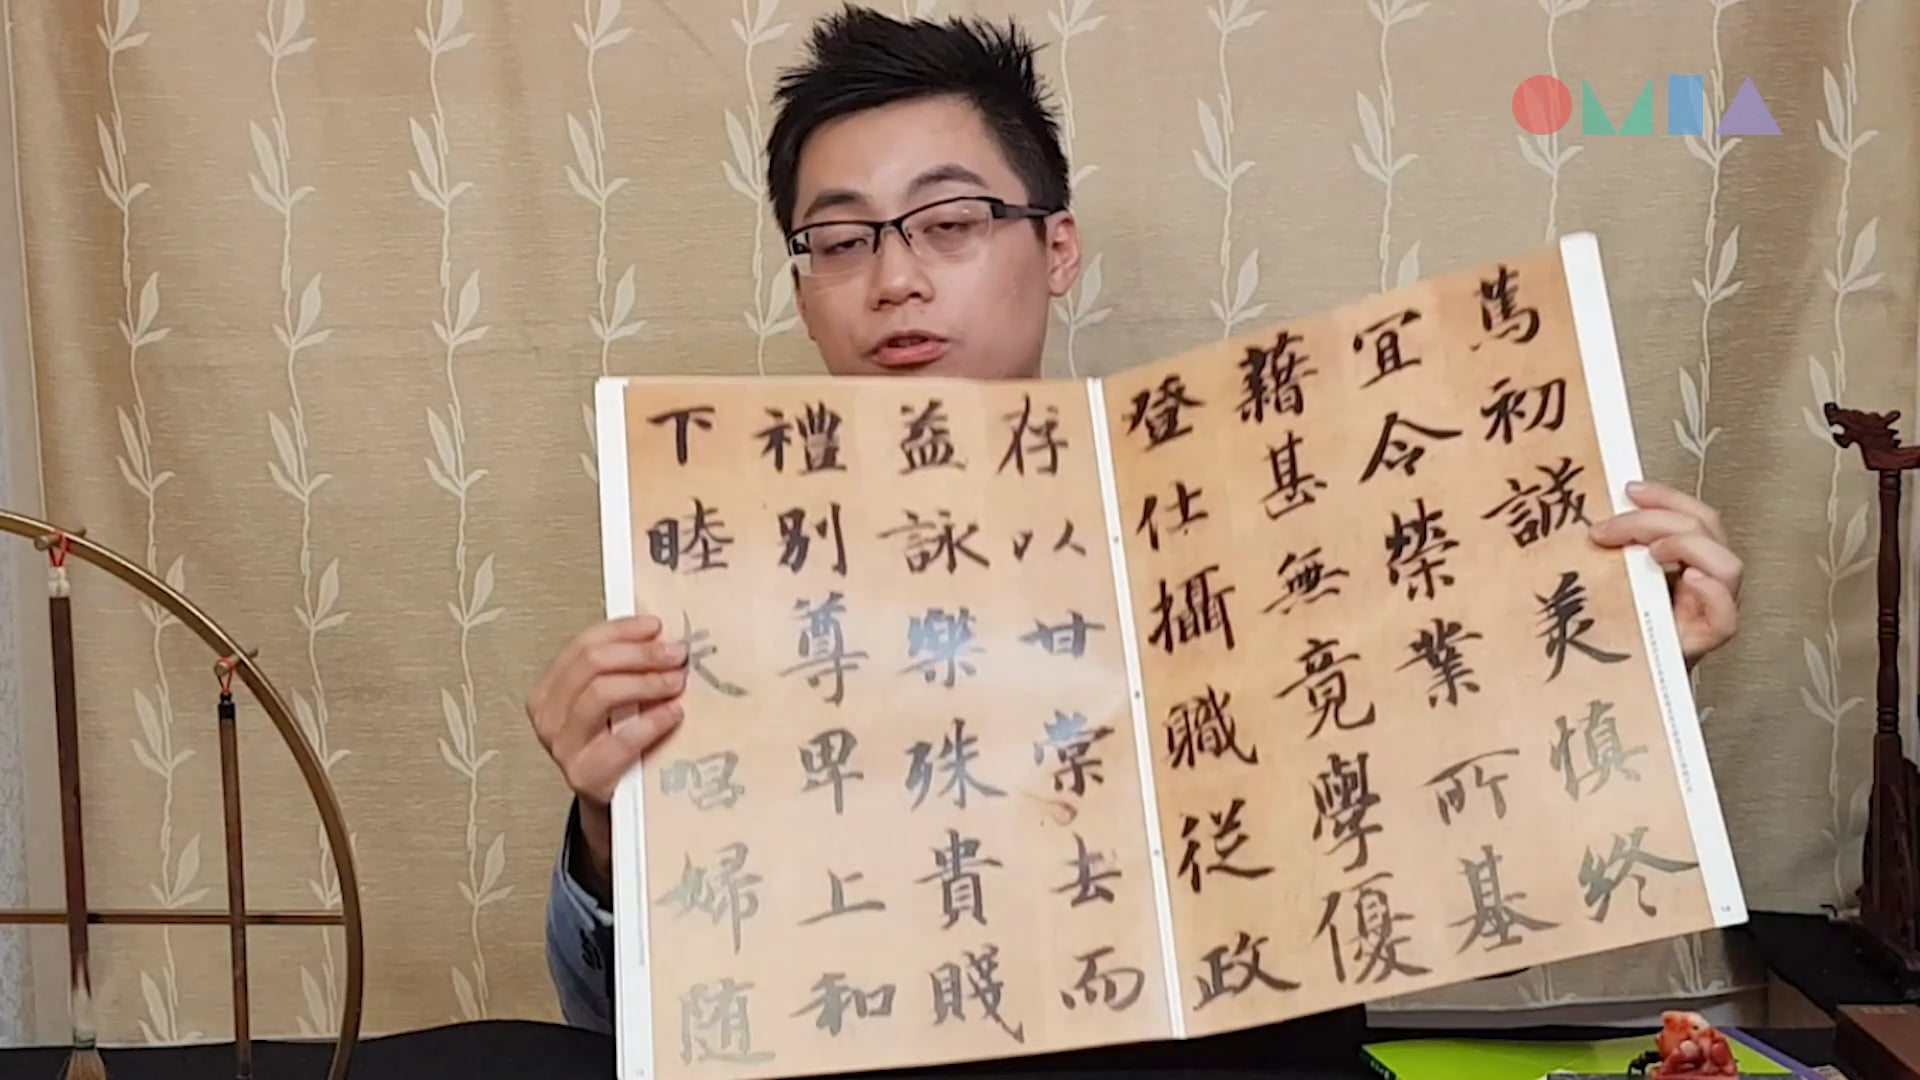 OMIA
篤初誠美慎終
宜令榮業所基
藉甚無竟學優
登仕攝職從政
存以甘棠去而
益詠樂殊貴賤
禮別尊卑上和
下睦夫唱婦随